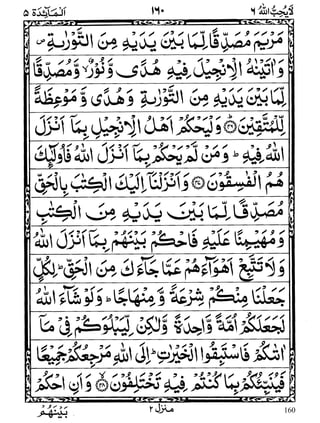 لَا یُحِبُّ اللّٰهُ ٦ ١٦٠ اَلْمَآئِدَة ٥
مَرْیَمَ مُصَدِّقًا لِّمَا بَیْنَ یَدَیْهِ مِنَ التَّوْرٰىةِ ۪
وَاٰتَیْنٰهُ الْاِنْجِیْلَ فِیْهِ هُدًی وَّنُوْرٌ ۙ وَّمُصَدِّقًا
لِّمَا بَیْنَ یَدَیْهِ مِنَ التَّوْرٰىةِ وَهُدًی وَّمَوْعِظَةً
لِّلْمُتَّقِیْنَ ؕ﴿۴۶﴾ وَلْیَحْكُمْ اَهْلُ الْاِنْجِیْلِ بِمَاۤ اَنْزَلَ
اللّٰهُ فِیْهِ ؕ وَمَنْ لَّمْ یَحْكُمْ بِمَاۤ اَنْزَلَ اللّٰهُ فَاُولٰٓئِكَ
هُمُ الْفٰسِقُوْنَ ﴿۴۷﴾ وَاَنْزَلْنَاۤ اِلَیْكَ الْكِتٰبَ بِالْحَقِّ
مُصَدِّقًا لِّمَا بَیْنَ یَدَیْهِ مِنَ الْكِتٰبِ
وَمُهَیْمِنًا عَلَیْهِ فَاحْكُمْ بَیْنَهُمْ بِمَاۤ اَنْزَلَ اللّٰهُ
وَلَا تَتَّبِعْ اَهْوَآءَهُمْ عَمَّا جَآءَكَ مِنَ الْحَقِّ ؕ لِكُلٍّ
جَعَلْنَا مِنْكُمْ شِرْعَةً وَّمِنْهَاجًا ؕ وَلَوْ شَآءَ اللّٰهُ
لَجَعَلَكُمْ اُمَّةً وَّاحِدَةً وَّلٰكِنْ لِّیَبْلُوَكُمْ فِیْ مَاۤ
اٰتٰىكُمْ فَاسْتَبِقُوا الْخَیْرٰتِ ؕ اِلَی اللّٰهِ مَرْجِعُكُمْ جَمِیْعًا
فَیُنَبِّئُكُمْ بِمَا كُنْتُمْ فِیْهِ تَخْتَلِفُوْنَ ۙ﴿۴۸﴾ وَاَنِ احْكُمْ
بَیْنَهُمْ منزل ٢ 160